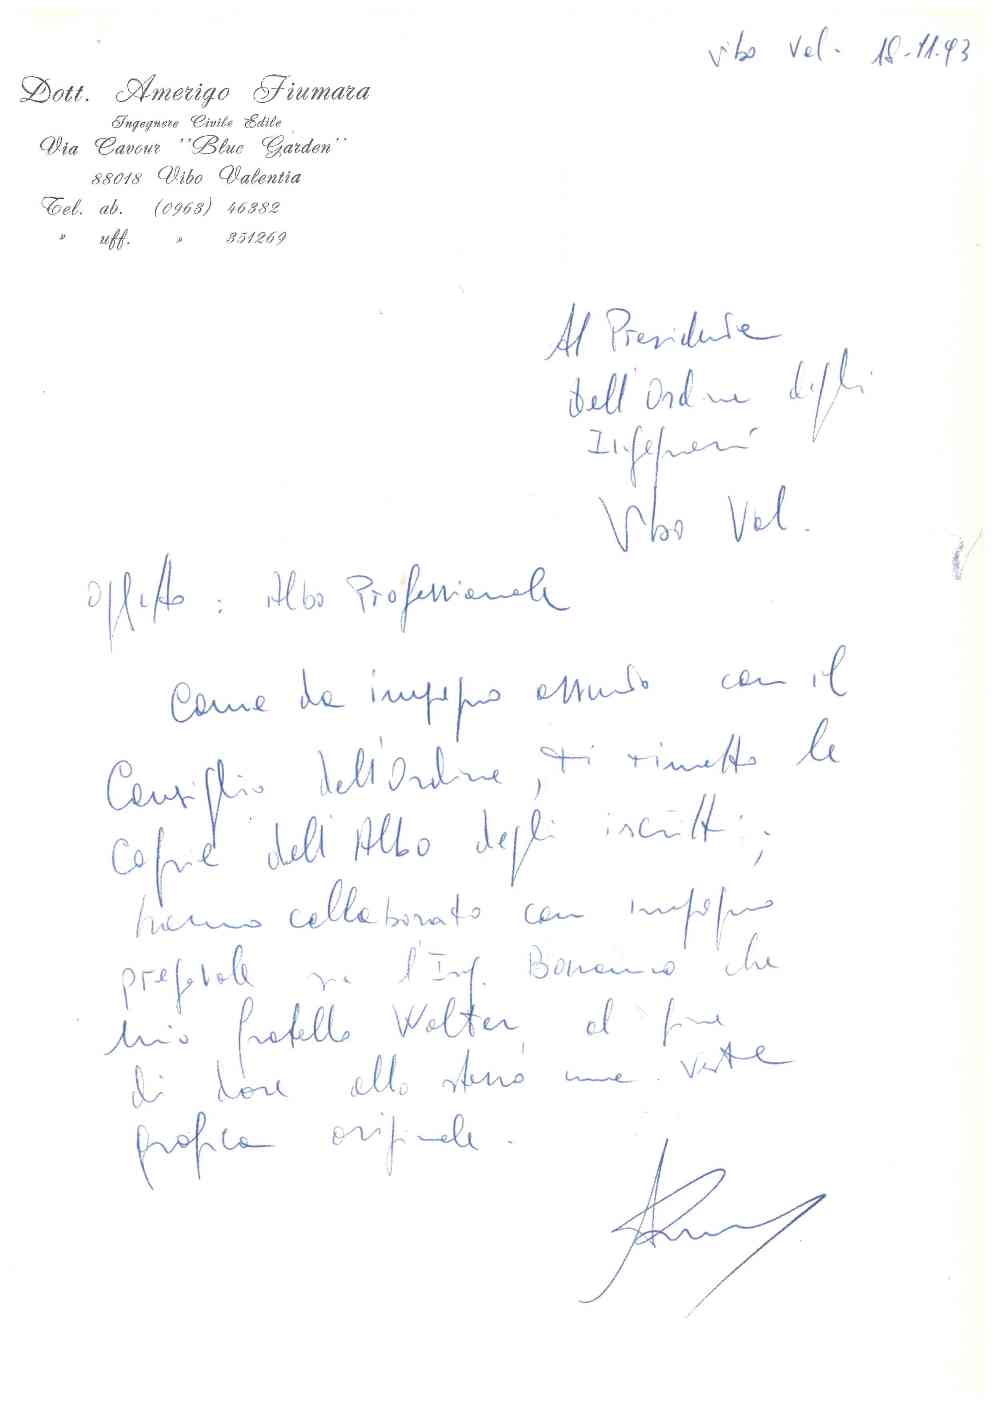 Vibo Val. 18-11-93
Dott. Amerigo Fiumara
Ingegnere Civile Edile
Via Cavour "Blue Garden"
88018 Vibo Valentia
Tel. ab. (0963) 46382
" uff. " 351269
Al Presidente
Dell'Ordine degli
Ingegneri
Vibo Val.
Oggetto : Albo Professionale
Come da impegno assunto con il
Consiglio dell'Ordine, ti rimetto le
copie dell'Albo degli iscritti;
hanno collaborato con impegno
pregevole sia l'Ing. Bonanno che
mio fratello Walter, al fine
di dare allo stesso una veste
grafica originale.